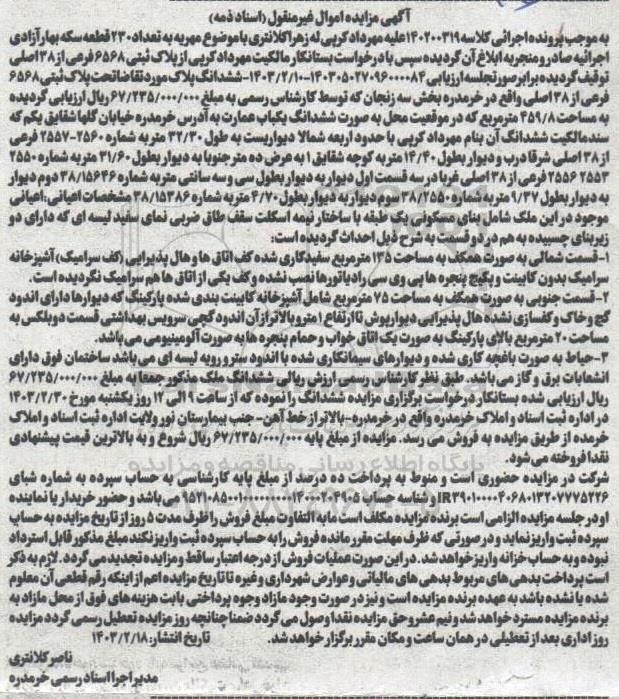 آگهی مزایده اموال غیرمنقول (اسناد ذمه)
به موجب پرونده اجرائی کلاسه ۱۴۰۲۰۰۳۱۹ علیه مهرداد کرپی له زهرا کلانتری با موضوع مهریه به تعداد ۲۳۰ قطعه سکه بهار آزادی
اجرائیه صادر و منجر به ابلاغ آن گردیده سپس با درخواست بستانکار مالکیت مهرداد کرپی از پلاک ثبتی ۶۵۶۸ فرعی از ۳۸ اصلی
توقیف گردیده برابر صورتجلسه ارزیابی ۱۴۰۳۰۵۰۲۷۰۹۶۰۰۰۰۸۴-۱۴۰۳/۲/۱۰ - ششدانگ پلاک مورد تقاضا تحت پلاک ثبتی ۶۵۶۸
فرعی از ۳۸ اصلی واقع در خرمدره بخش سه زنجان که توسط کارشناس رسمی به مبلغ ۶۷/۲۳۵/۰۰۰/۰۰۰ ریال ارزیابی گردیده
به مساحت ۴۵۹/۸ مترمربع که در موقعیت محل به صورت ششدانگ یکباب عمارت به آدرس خرمدره خیابان گلها شقایق یکم که
سند مالکیت ششدانگ آن بنام مهرداد کرپی با حدود اربعه شمالا دیواریست به طول ۳۲/۳۰ متر به شماره ۲۵۶۰-۲۵۵۷ فرعی
از ۳۸ اصلی شرقا درب و دیوار بطول ۱۴/۴۰ متر به کوچه شقایق ۱ به عرض ده متر جنوبا به دیوار بطول ۳۱/۶۰ متر به شماره ۲۵۵۰
۲۵۵۳ ۲۵۵۶ فرعی از ۳۸ اصلی غربا در سه قسمت اول دیوار به دیوار بطول سی و سه سانتی متر به شماره ۳۸/۱۵۶۴۶ دوم دیوار
به دیوار بطول ۹/۳۷ متر به شماره ۳۸/۲۵۵۰ سوم دیوار به دیوار بطول ۴/۷۰ متر به شماره ۳۸/۱۵۳۸۶ مشخصات اعیانی: اعیانی
موجود در این ملک شامل بنای مسکونی یک طبقه با ساختار نیمه اسکلت سقف طاق ضربی نمای سفید لیسه ای که دارای دو
زیربنای چسبیده به هم در دو قسمت به شرح ذیل احداث گردیده است:
۱- قسمت شمالی به صورت همکف به مساحت ۱۳۵ مترمربع سفیدکاری شده کف اتاق ها و هال پذیرایی (کف سرامیک) آشپزخانه
سرامیک بدون کابینت و پکیج پنجره ها پی وی سی رادیاتورها نصب نشده و کف یکی از اتاق ها هم سرامیک نگردیده است.
۲- قسمت جنوبی به صورت همکف به مساحت ۷۵ مترمربع شامل آشپزخانه کابینت بندی شده پارکینگ که دیوارها دارای اندود
گچ و خاک و کفسازی نشده هال پذیرایی دیوارپوش تا ارتفاع ۱ متر و بالاتر از آن اندود گچی سرویس بهداشتی قسمت دوبلکس به
مساحت ۲۰ مترمربع بالای پارکینگ به صورت یک اتاق خواب و حمام پنجره ها به صورت آلومینیومی می باشد.
۳- حیاط به صورت باغچه کاری شده و دیوارهای سیمانکاری شده با اندود ستر و رویه لیسه ای می باشد ساختمان فوق دارای
انشعابات برق و گاز می باشد. طبق نظر کارشناس رسمی ارزش ریالی ششدانگ ملک مذکور جمعا به مبلغ ۶۷/۲۳۵/۰۰۰/۰۰۰
ریال ارزیابی شده بستانکار درخواست برگزاری مزایده ششدانگ را نموده که از ساعت ۹ الی ۱۲ روز یکشنبه مورخ ۱۴۰۳/۲/۳۰
در اداره ثبت اسناد و املاک خرمدره واقع در خرمدره- بالاتر از خط آهن- جنب بیمارستان نور ولایت اداره ثبت اسناد و املاک
خرمده از طریق مزایده به فروش می رسد. مزایده از مبلغ پایه ۶۷/۲۳۵/۰۰۰/۰۰۰ ریال شروع و به بالاترین قیمت پیشنهادی
نقدا فروخته می شود.
شرکت در مزایده حضوری است و منوط به پرداخت ده درصد از مبلغ پایه کارشناسی به حساب سپرده به شماره شبای
و شناسه حساب می باشد و حضور خریدار یا نماینده
او در جلسه مزایده الزامی است برنده مزایده مکلف است مابه التفاوت مبلغ فروش را ظرف مدت ۵ روز از تاریخ مزایده به حساب
سپرده ثبت واریز نماید و در صورتی که ظرف مهلت مقرر مانده فروش را به حساب سپرده ثبت واریز نکند مبلغ مذکور قابل استرداد
نبوده و به حساب خزانه واریز خواهد شد. در این صورت عملیات فروش از درجه اعتبار ساقط و مزایده تجدید می گردد. لازم به ذکر
است پرداخت بدهی های مربوط بدهی های مالیاتی و عوارض شهرداری و غیره تا تاریخ مزایده اعم از اینکه رقم قطعی آن معلوم
شده یا نشده باشد به عهده برنده مزایده است و نیز در صورت وجود مازاد وجوه پرداختی بابت هزینه های فوق از محل مازاد به
برنده مزایده مسترد خواهد شد و نیم عشر و حق مزایده نقدا وصول می گردد ضمنا چنانچه روز مزایده تعطیل رسمی گردد مزایده
روز اداری بعد از تعطیلی در همان ساعت و مکان مقرر برگزار خواهد شد. تاریخ انتشار: ۱۴۰۳/۲/۱۸
ناصر کلانتری
مدیر اجرا اسناد رسمی خرمدره